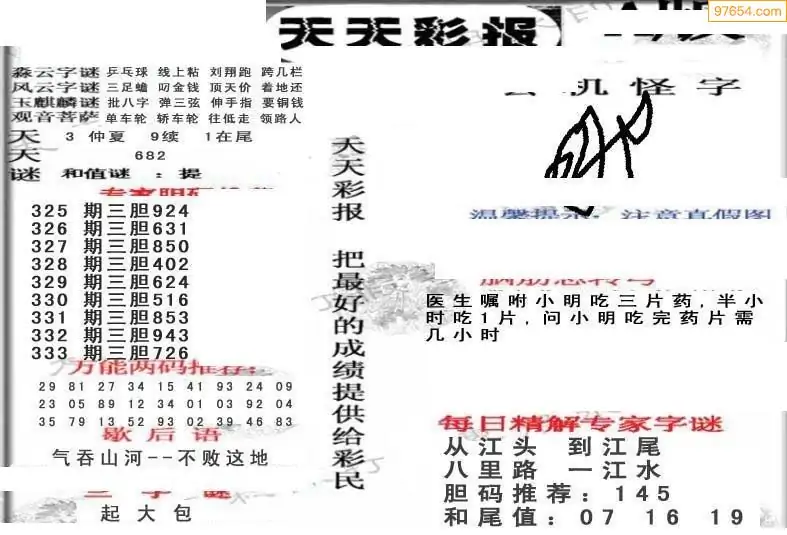 97654.com
天天彩报
森云字谜 乒乓球 线上粘 刘翔跑 跨几栏
风云字谜 三足蟾 叼金钱 顶天价 着地还
玉麒麟谜 批八字 弹三弦 伸手指 要铜钱
观音菩萨 单车轮 轿车轮 往低走 领路人
天 3 仲夏 9续 1在尾
天 682
谜 和值谜 :提
325 期三胆924
326 期三胆631
327 期三胆850
328 期三胆402
329 期三胆624
330 期三胆516
331 期三胆853
332 期三胆943
333 期三胆726
万能两码推荐:
29 81 27 34 15 41 93 24 09
23 05 89 12 34 01 03 92 04
35 79 13 52 93 02 39 46 83
歇后语
气吞山河--不败这地
三字谜
起大包
天天彩报 把最好的成绩提供给彩民
机怪字
温馨提示: 注意真假图
脑筋急转弯
医生嘱咐小明吃三片药,半小
时吃1片,问小明吃完药片需
几小时
每日精解专家字谜
从江头 到江尾
八里路 一江水
胆码推荐:145
和尾值:07 16 19